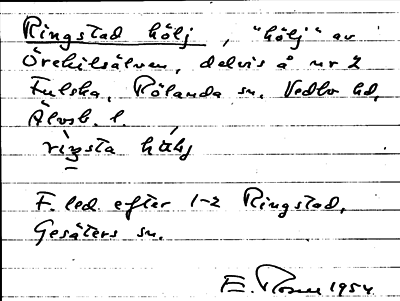 Ringstad hölj, "hölj" av
Örekilsälven, delvis å nr 2
Fulska, Rölanda sn. Vedbo hd,
Älvsb. l.
ringsta
F. led efter 1-2 Ringstad,
Gesäters sn.
E. 1954